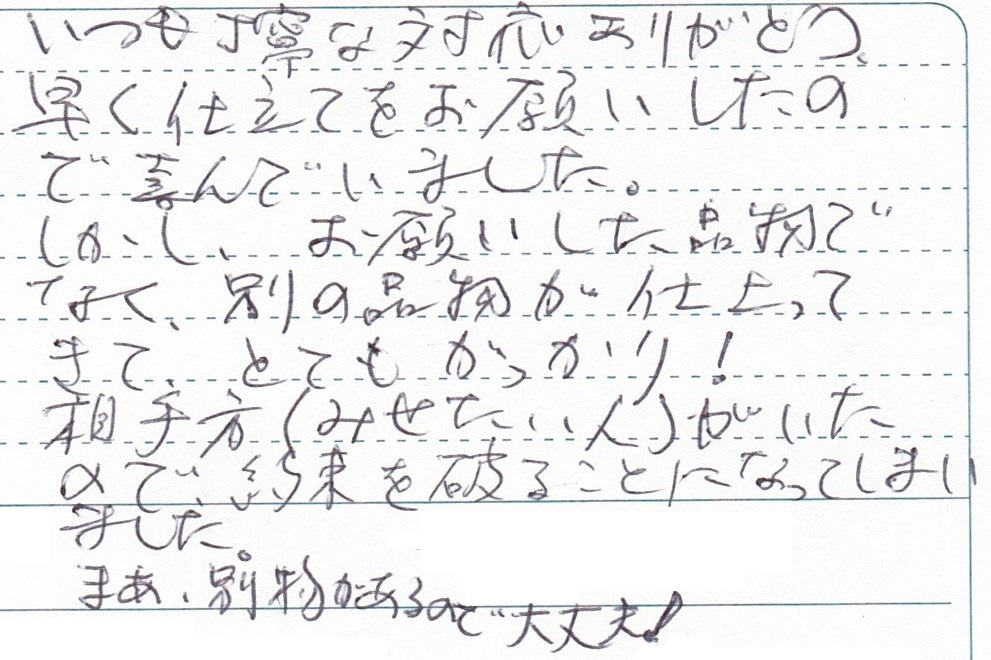 いつも丁寧な対応ありがとう、
早く仕立てをお願いしたの
で喜んでいました。
しかし、お願いした品物で
なく、別の品物が仕上って
きて、とてもがっかり！
相手方(みせたい人)がいた
ので、約束を破ることになってしまい
ました。
まあ、別物があるので大丈夫！